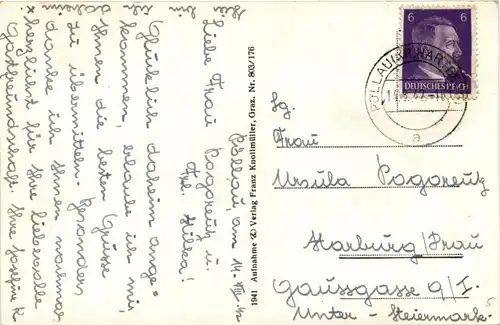 Pöllau am 14. VIII. 42
Liebe Frau Pogoreutz u.
Frl. Hilka!
Glücklich daheim ange=
kommen, erlaube ich mir,
Ihnen die besten Grüsse
zu übermitteln. Besonders
danke ich Ihnen nochmals
herzlichst für Ihre liebevolle
Gastfreundschaft. Ihre Josefine K
1941 Aufnahme u. Verlag Franz Knollmüller, Graz. Nr. 803/176
6 6
DEUTSCHES REICH
PÖLLAU
a
Frau
Ursula Pogoreutz
Marburg/Drau
Gaussgasse 9/I.
Unter-Steiermark.